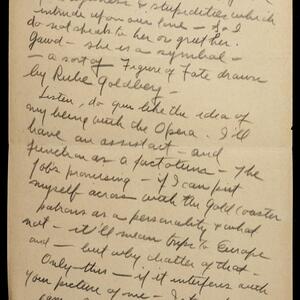 & stupidities which
intrude upon our love — & I
do not speak to her or greet her.
Gawd — she is a symbol —
— a sort of Figure of Fate drawn
by Rube Goldberg —
Listen, do you like the idea of
my being with the Opera. I'll
have an assistant — and
function as a factotum — The
job's promising — if I can put
myself across with the Gold Coaster
patrons as a personality & what
not — it'll mean trips to Europe
and — but why chatter of that —
Only this — if it interferes with
your picture of me —